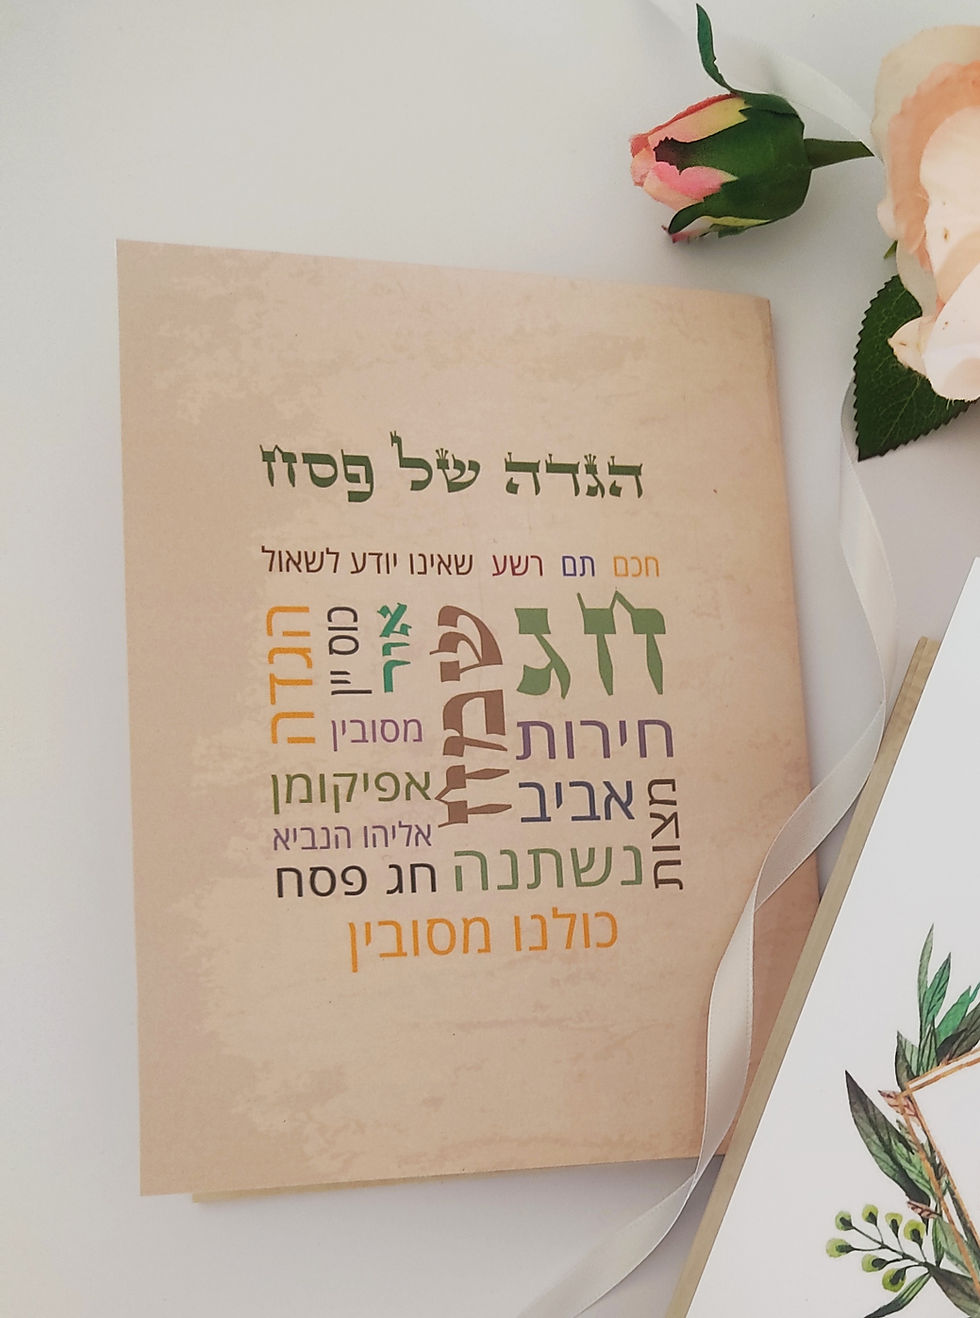 הגדה של פסח
חכם תם רשע שאינו יודע לשאול
חג
שמח
אור
כוס יין
הגדה
חירות
מסובין
אביב
מצות
אפיקומן
אליהו הנביא
נשתנה
חג פסח
כולנו מסובין